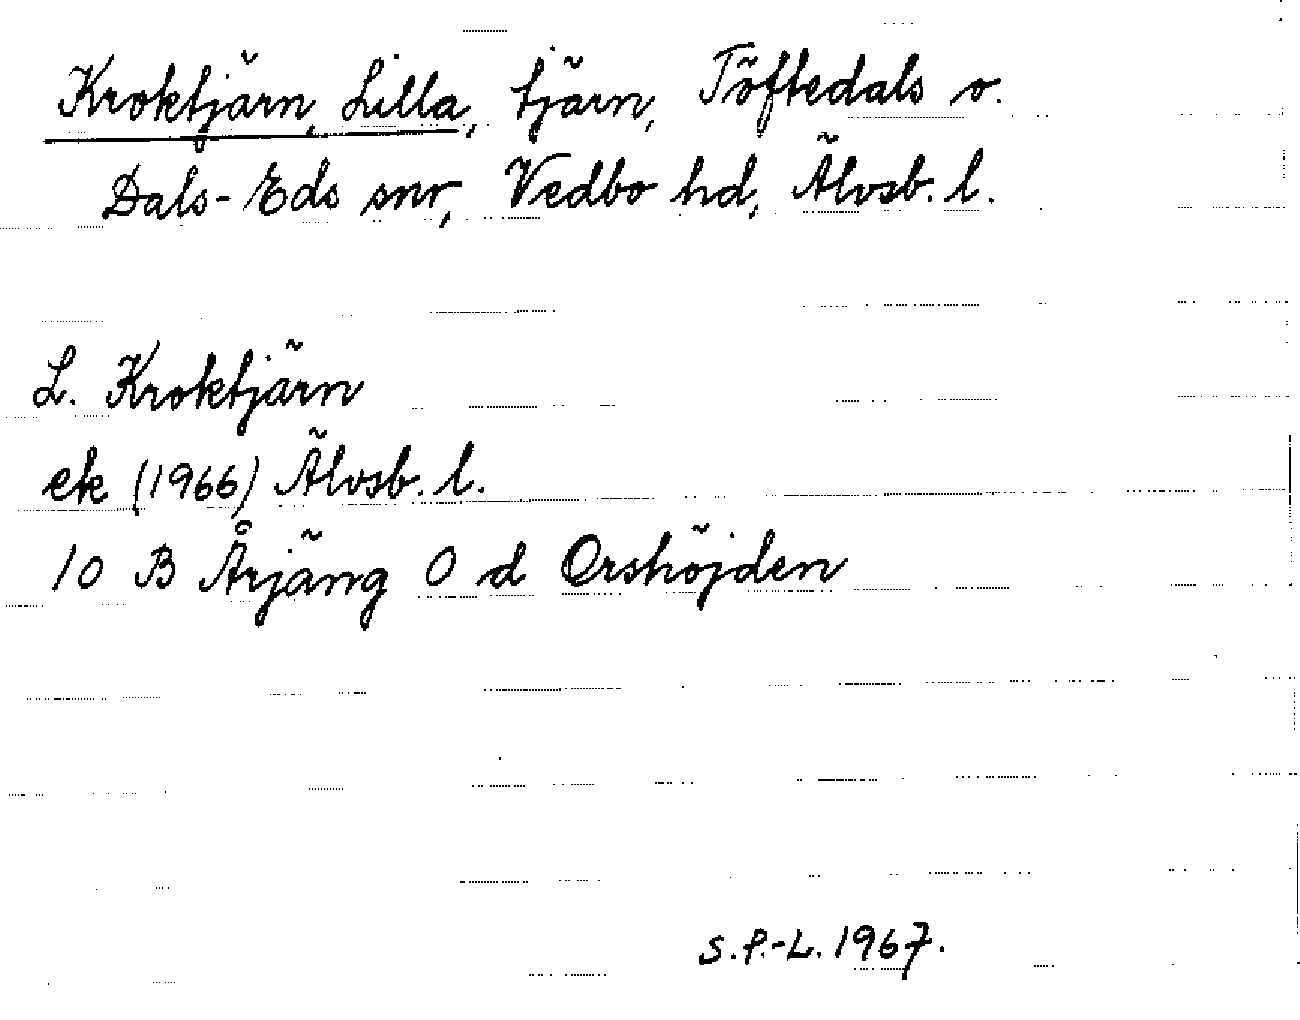 Kroktjärn, Lilla, tjärn, Töftedals o.
Dals-Eds snr, Vedbo hd, Älvsb. l.
L. Kroktjärn
ek (1966) Älvsb. l.
10 B Årjäng 0 d Orshöjden
S.P.-L. 1967.